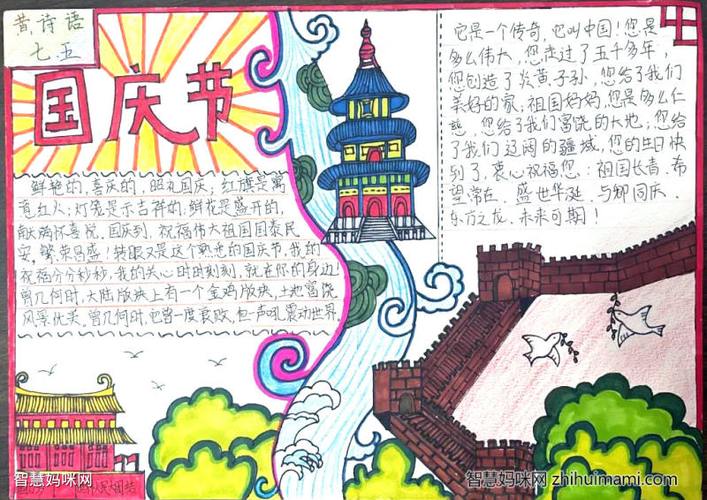 黄诗语
七.五
国庆节
鲜艳的,喜庆的,昭礼国庆,红旗是篱
真红人;灯笼是示吉祥的,鲜花是盛开的,
献两怀喜悦,国庆到,祝福伟大祖国国泰民
安,繁荣昌盛!转眼又是这个熟悉的国庆节,我的
祝福分分秒秒,我的关心时时刻刻,就在你的身边!
曾几何时,大陆版块上有一个金鸡版块,土地富饶
风景优美,曾几何时,也曾一度衰败,但一声吼震动世界.
它是一个传奇,它叫中国!您是
多么伟大,您走过了五千多年,
您创造了炎黄子孙,您给了我们
美好的家,祖国妈妈,您是多么仁
慈,您给了我们富饶的大地;您给
了我们辽阔的疆域,您的生日快
到了,衷心祝福您:祖国长青,希
望常在,盛世华诞,与卿同庆,
东方之龙,未来可期!
智慧妈咪网
智慧妈咪网 zhihuimami.com